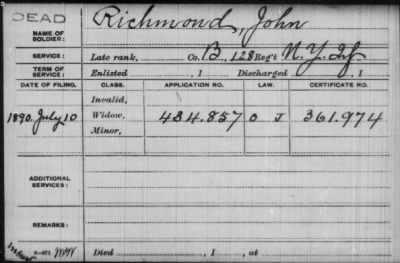 DEAD
NAME OF SOLDIER: Richmond, John
SERVICE: Late rank, Co. B, 128 Reg't N. Y. Inf.
TERM OF SERVICE: Enlisted , 1 Discharged , 1
DATE OF FILING. CLASS. APPLICATION NO. LAW. CERTIFICATE NO.
Invalid,
1890. July 10 Widow, 434.857 O J 361.974
Minor,
ADDITIONAL SERVICES:
REMARKS:
Died , 1 , at